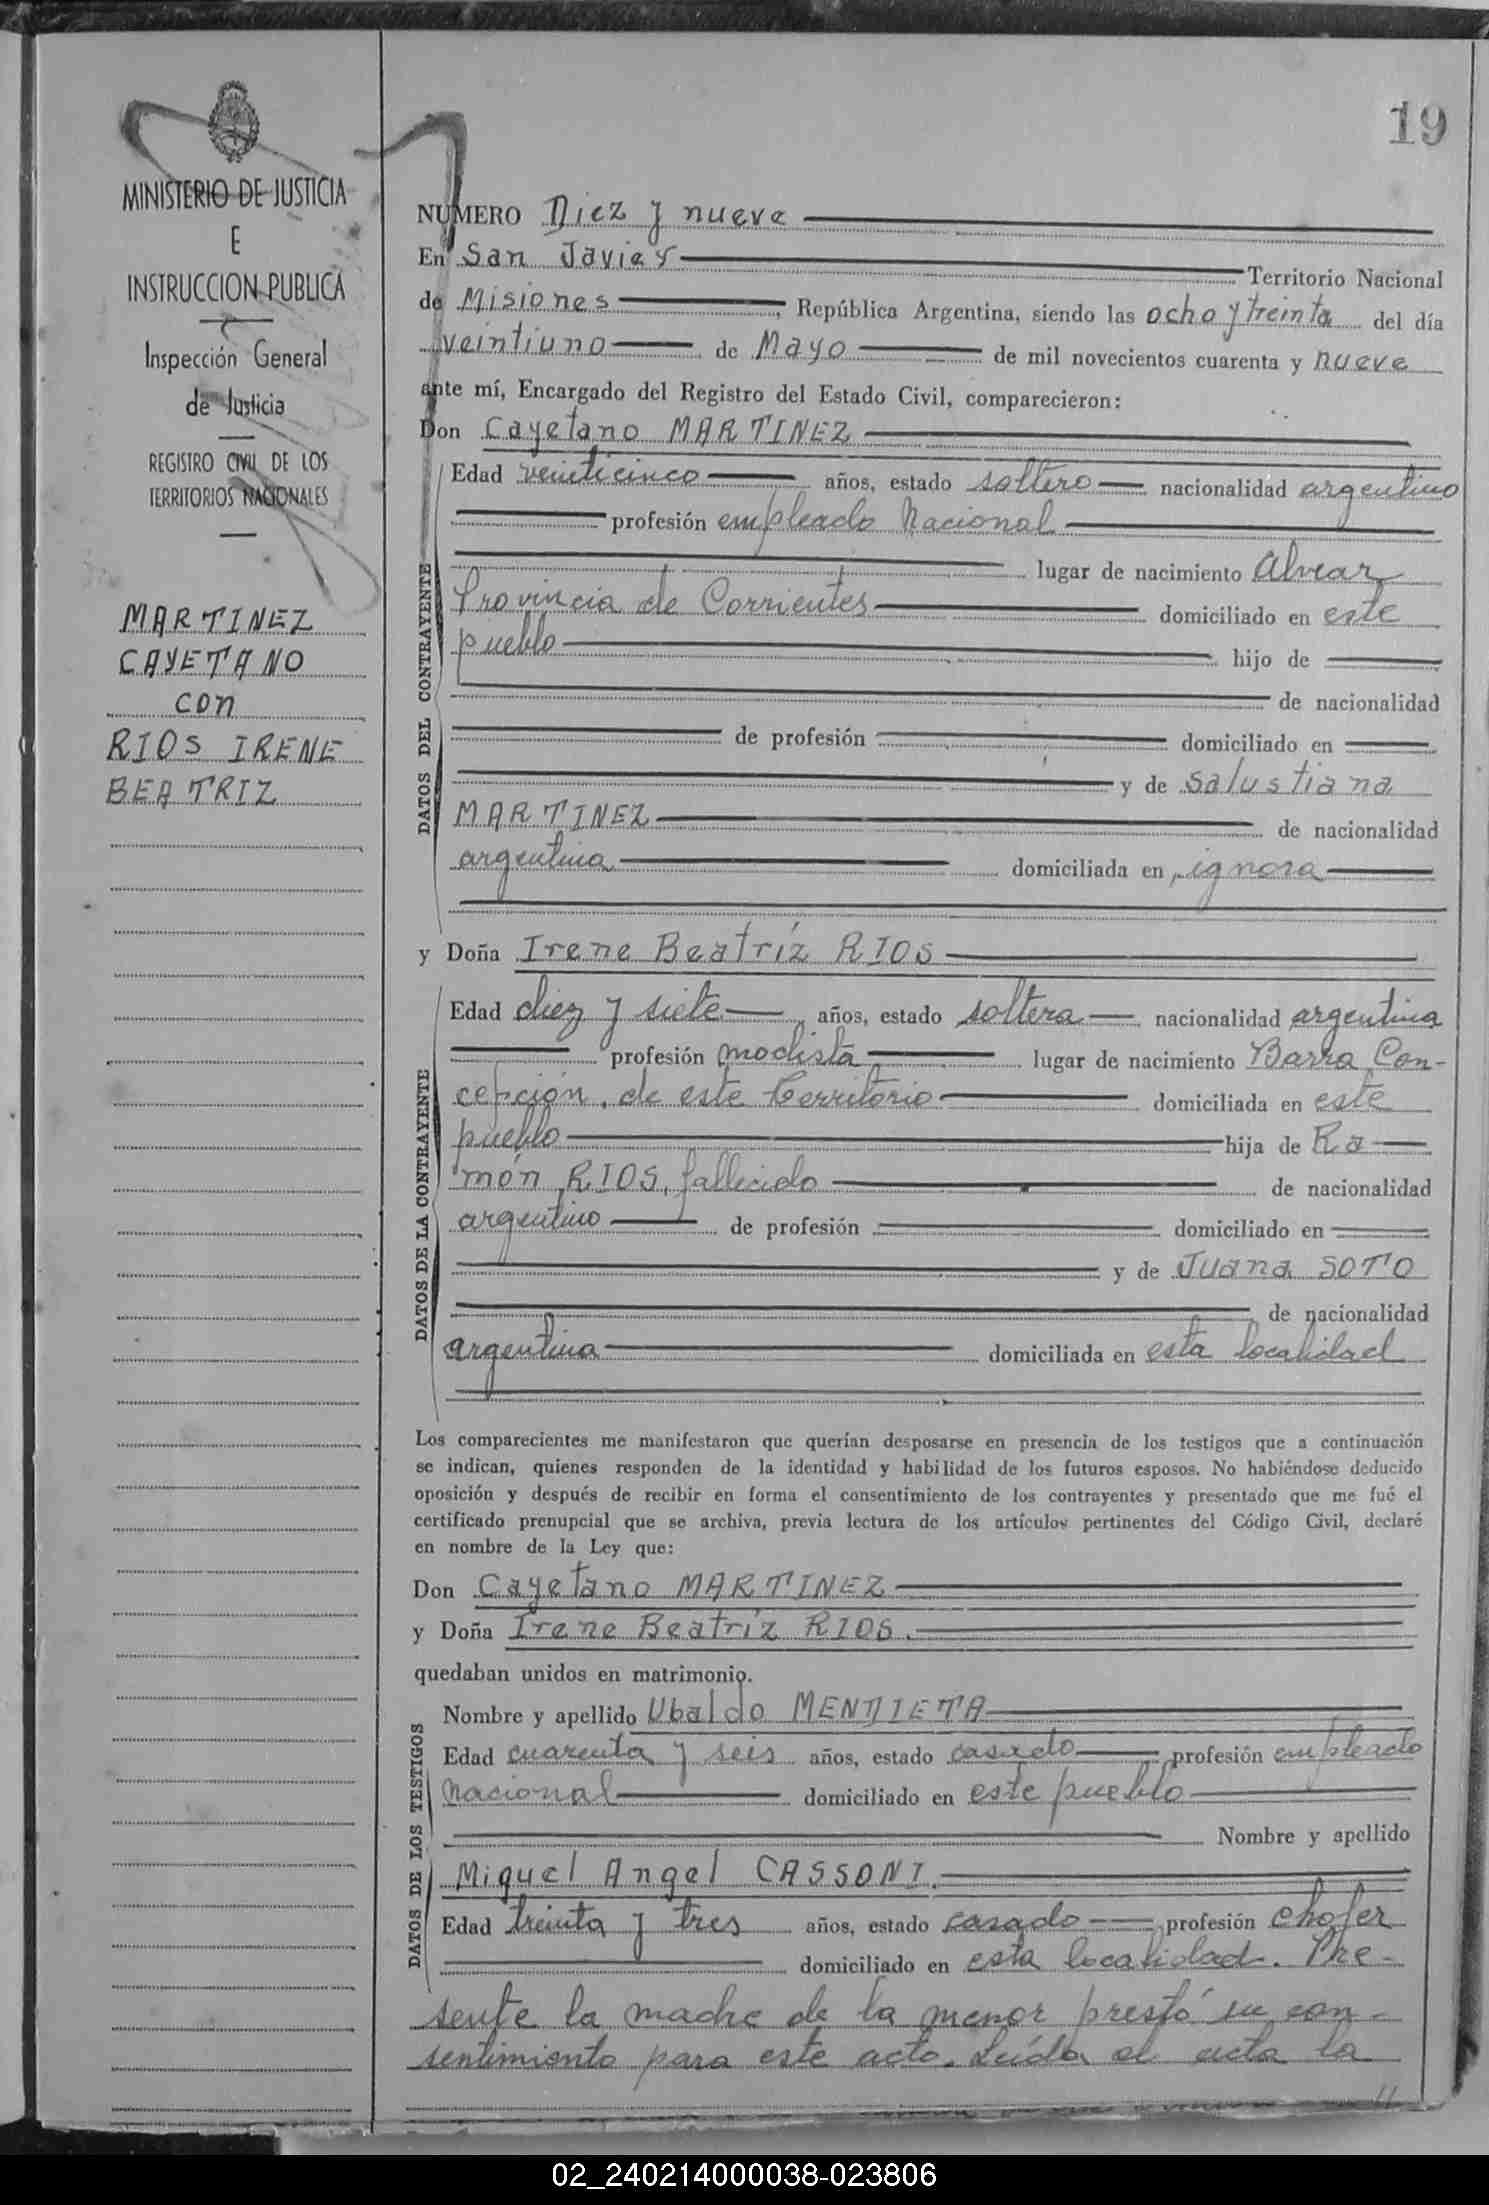 19
MINISTERIO DE JUSTICIA
E
INSTRUCCION PUBLICA
Inspección General
de Justicia
REGISTRO CIVIL DE LOS
TERRITORIOS NACIONALES
MARTINEZ
CAYETANO
con
RIOS IRENE
BEATRIZ
NUMERO Diez y nueve
En San Javier Territorio Nacional
de Misiones, República Argentina, siendo las ocho y treinta del día
veintiuno de Mayo de mil novecientos cuarenta y nueve
ante mí, Encargado del Registro del Estado Civil, comparecieron:
Don Cayetano MARTINEZ
DATOS DEL CONTRAYENTE
Edad veinticinco años, estado soltero nacionalidad argentino
profesión empleado Nacional
lugar de nacimiento Alvear
Provincia de Corrientes domiciliado en este
pueblo hijo de
de nacionalidad
de profesión domiciliado en
y de Salustiana
MARTINEZ de nacionalidad
argentina domiciliada en ignora
y Doña Irene Beatríz RIOS
DATOS DE LA CONTRAYENTE
Edad diez y siete años, estado soltera nacionalidad argentina
profesión modista lugar de nacimiento Barra Con-
cepción, de este Territorio domiciliada en este
pueblo hija de Ra
món RIOS, fallecido de nacionalidad
argentino de profesión domiciliado en
y de Juana SOTO
de nacionalidad
argentina domiciliada en esta localidad
Los comparecientes me manifestaron que querían desposarse en presencia de los testigos que a continuación
se indican, quienes responden de la identidad y habilidad de los futuros esposos. No habiéndose deducido
oposición y después de recibir en forma el consentimiento de los contrayentes y presentado que me fué el
certificado prenupcial que se archiva, previa lectura de los artículos pertinentes del Código Civil, declaré
en nombre de la Ley que:
Don Cayetano MARTINEZ
y Doña Irene Beatríz RIOS.
quedaban unidos en matrimonio.
DATOS DE LOS TESTIGOS
Nombre y apellido Ubaldo MENDIETA
Edad cuarenta y seis años, estado casado profesión empleado
nacional domiciliado en este pueblo
Nombre y apellido
Miguel Angel CASSONI.
Edad treinta y tres años, estado casado profesión chofer
domiciliado en esta localidad. Pre-
sente la madre de la menor prestó su con-
sentimiento para este acto. Leída el acta la
//
02_240214000038-023806